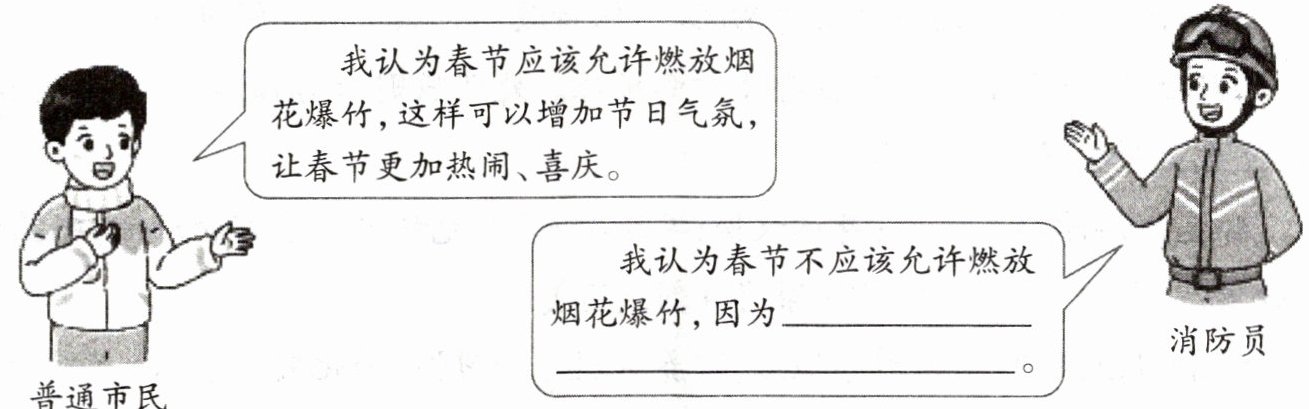 我认为春节应该允许燃放烟
花爆竹,这样可以增加节日气氛,
让春节更加热闹、喜庆。
普通市民
我认为春节不应该允许燃放
烟花爆竹,因为
。
消防员